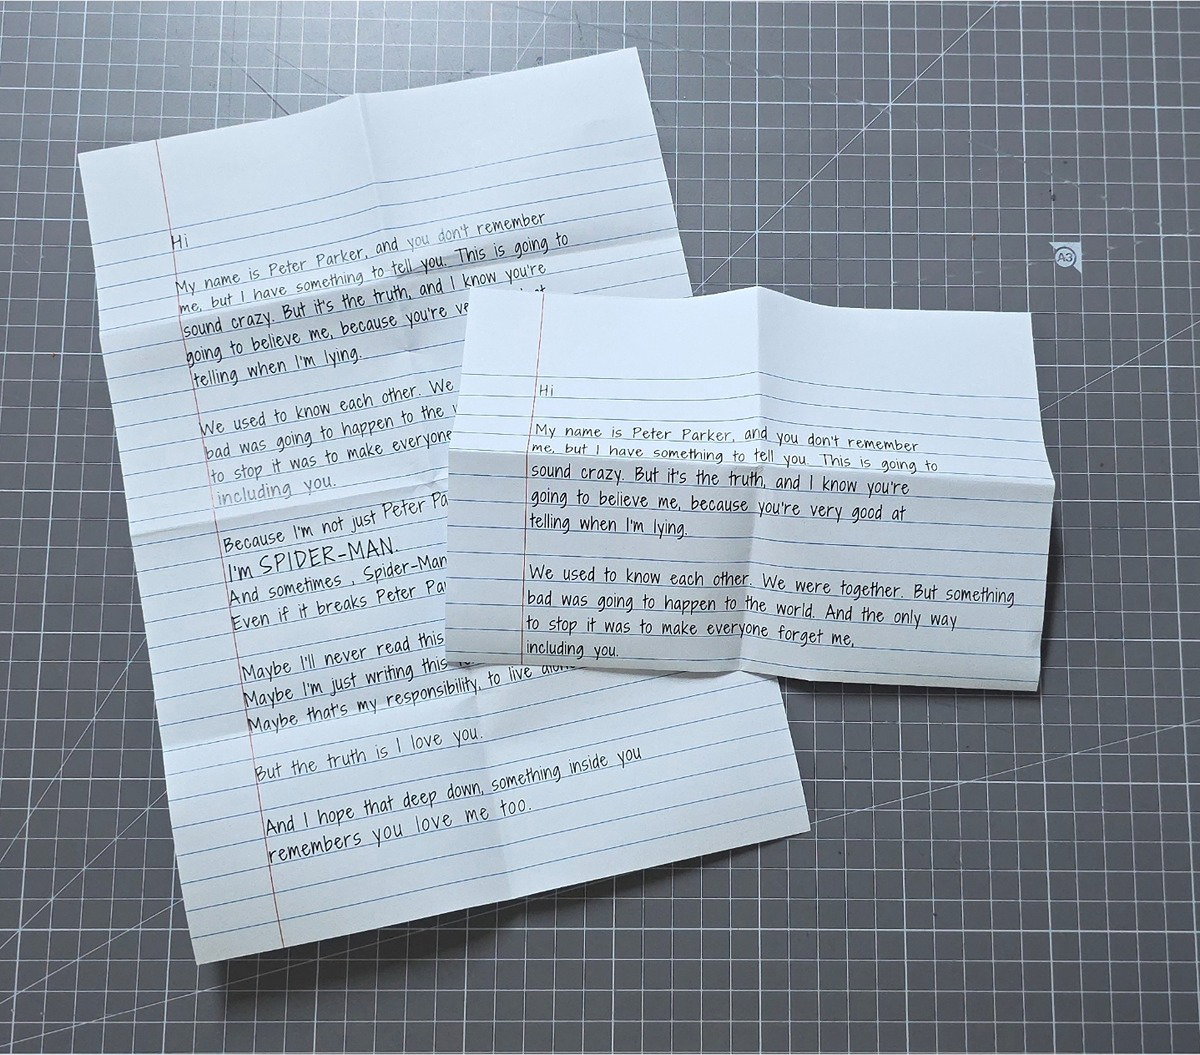 Hi
My name is Peter Parker, and you don't remember
me, but I have something to tell you. This is going to
sound crazy. But it's the truth, and I know you're
going to believe me, because you're
telling when I'm lying.
We used to know each other. We
bad was going to happen to the
to stop it was to make everyone
including you.
Because I'm not just Peter
I'm SPIDER-MAN.
And sometimes , Spider-Man
Even if it breaks Peter
Maybe I'll never read this
Maybe I'm just writing this
Maybe that's my responsibility, to live
But the truth is I love you.
And I hope that deep down, something inside you
remembers you love me too.
Hi
My name is Peter Parker, and you don't remember
me, but I have something to tell you. This is going to
sound crazy. But it's the truth, and I know you're
going to believe me, because you're very good at
telling when I'm lying.
We used to know each other. We were together. But something
bad was going to happen to the world. And the only way
to stop it was to make everyone forget me,
including you.
A3